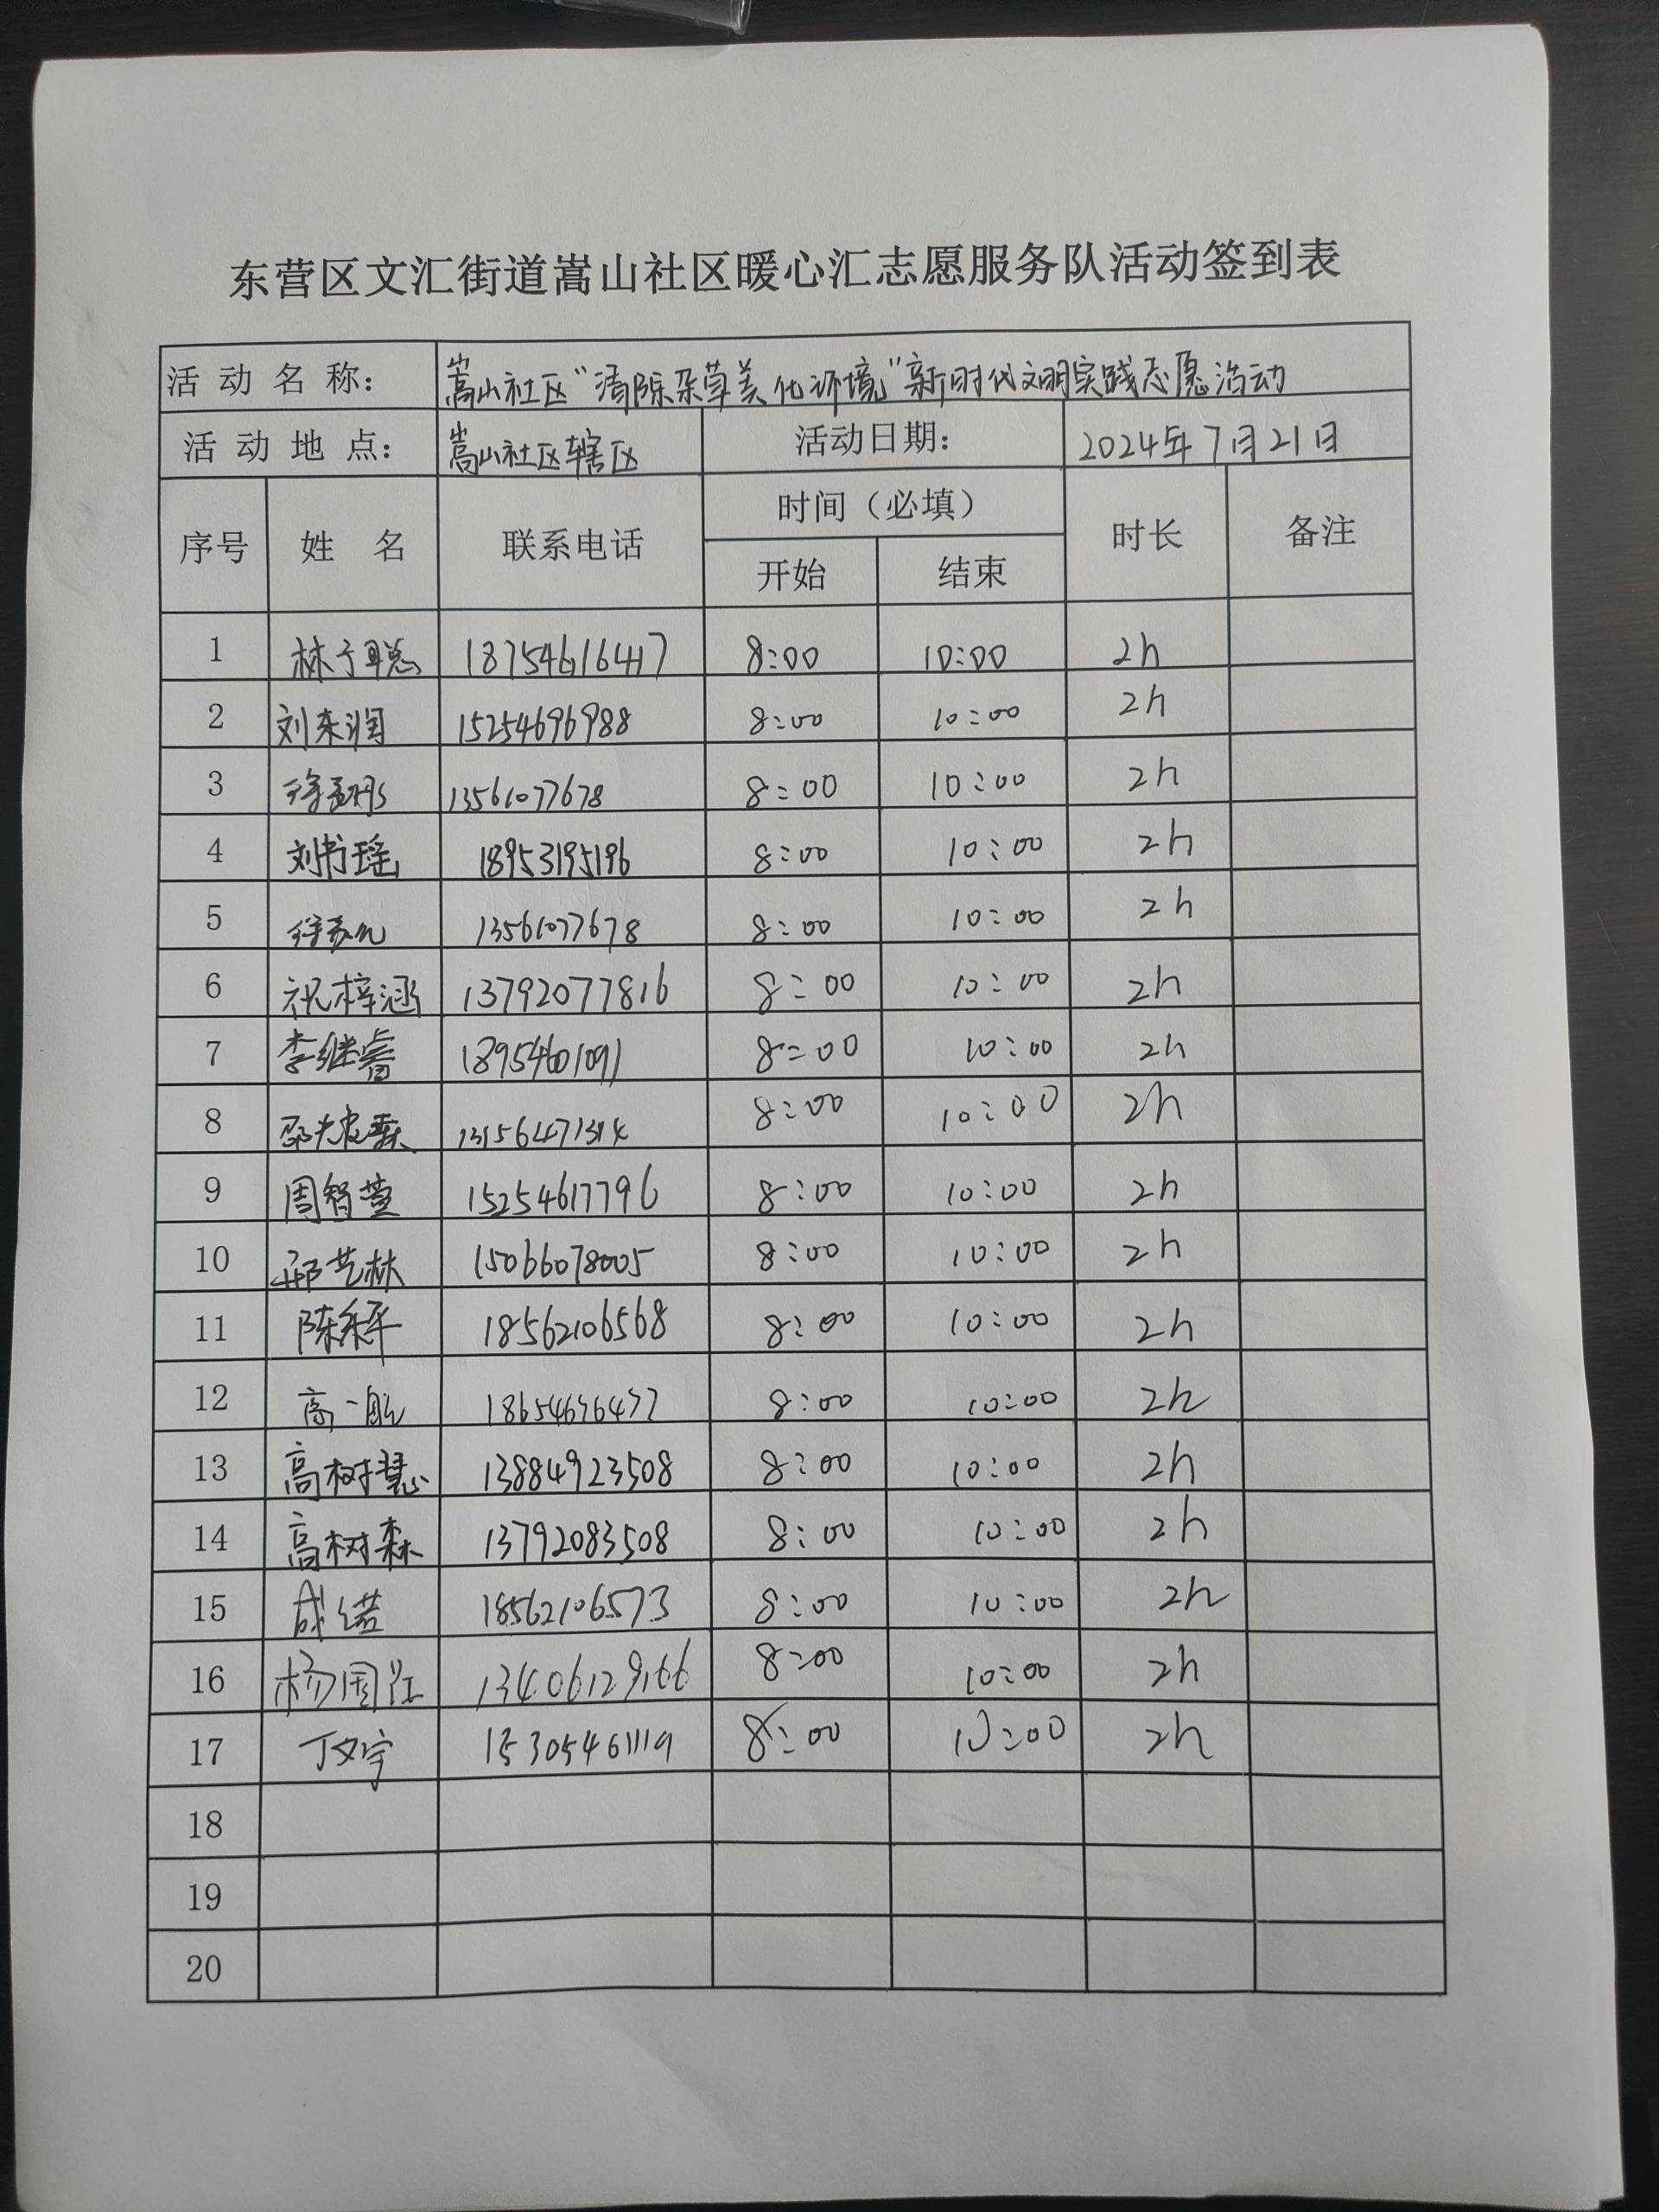 东营区文汇街道嵩山社区暖心汇志愿服务队活动签到表
活动名称： 嵩山社区“清除杂草美化环境”新时代文明实践志愿活动
活动地点： 嵩山社区辖区 活动日期： 2024年7月21日
序号 姓名 联系电话 时间（必填） 时长 备注
开始 结束
1 林子聪 18754616417 8:00 10:00 2h
2 刘东润 15254696988 8:00 10:00 2h
3 13561077678 8:00 10:00 2h
4 刘书瑶 18953195196 8:00 10:00 2h
5 13561077678 8:00 10:00 2h
6 祝梓涵 13792077816 8:00 10:00 2h
7 李继睿 18954601091 8:00 10:00 2h
8 8:00 10:00 2h
9 周智萱 15254617796 8:00 10:00 2h
10 邢艺林 15066078005 8:00 10:00 2h
11 18562106568 8:00 10:00 2h
12 高一航 8:00 10:00 2h
13 高树慧 13884923508 8:00 10:00 2h
14 高树森 13792083508 8:00 10:00 2h
15 成诺 18562106573 8:00 10:00 2h
16 13406129166 8:00 10:00 2h
17 丁文宇 15305461119 8:00 10:00 2h
18
19
20